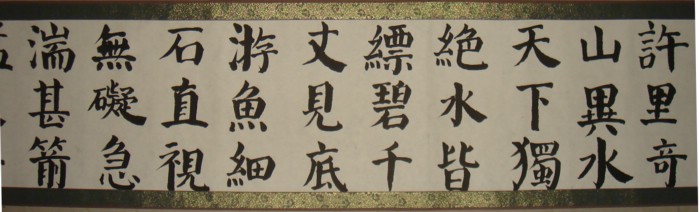 許里奇
山異水
天下獨
絕水皆
縹碧千
丈見底
游魚細
石直視
無礙急
湍甚箭